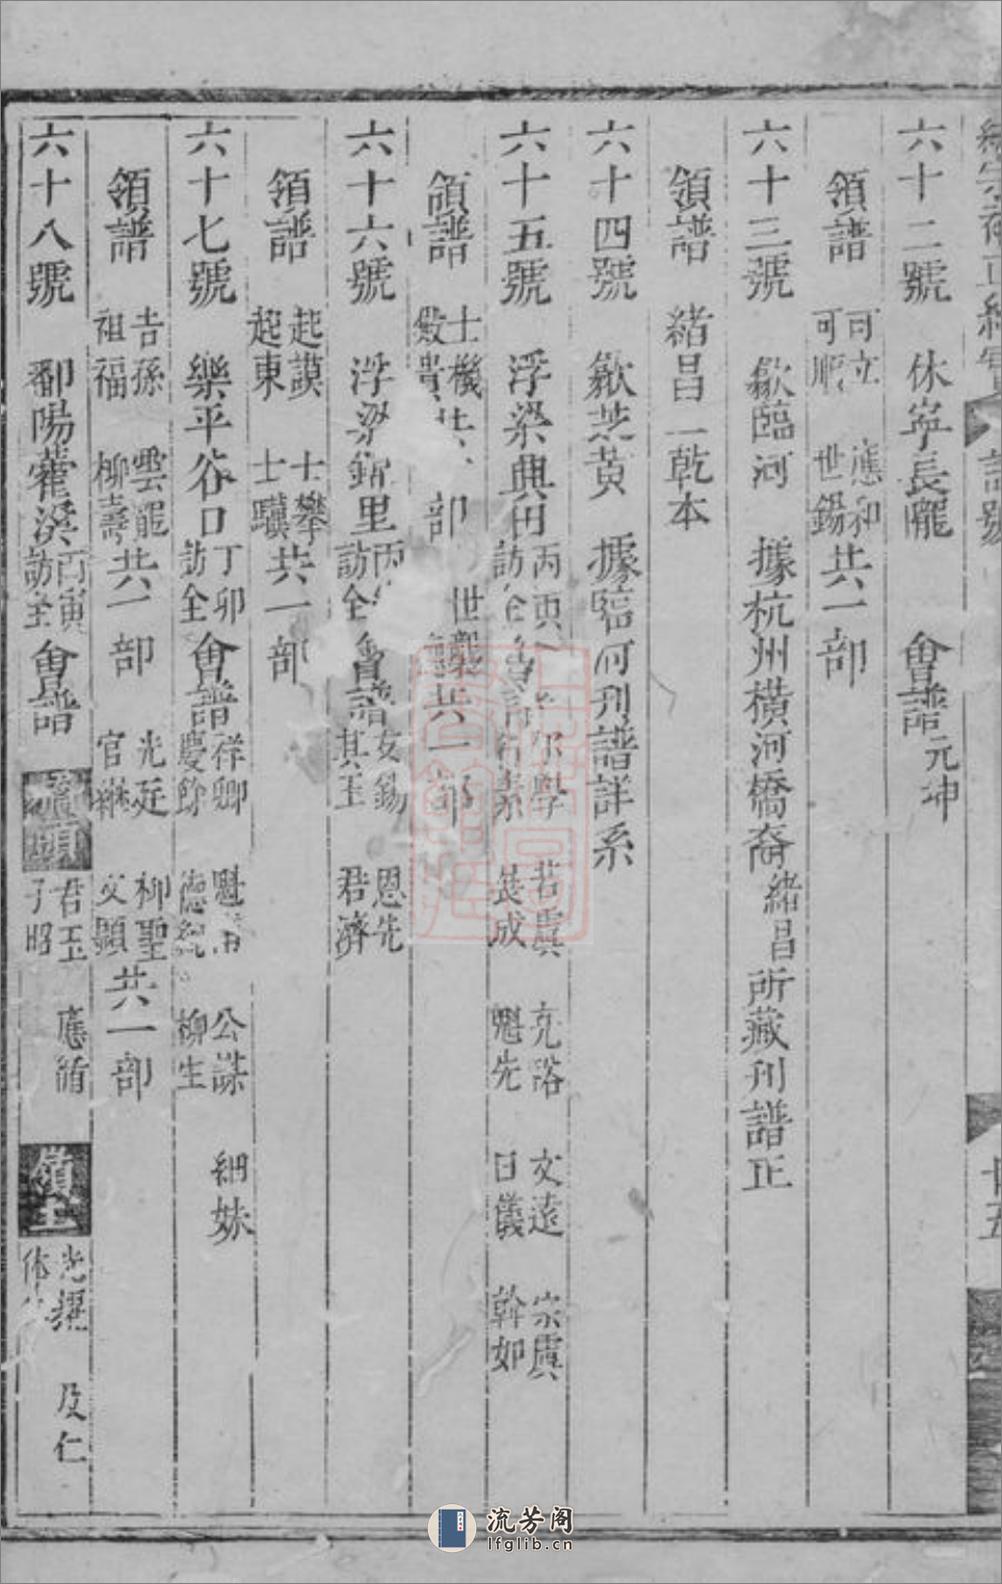 六十二號 休寧長隴 會譜 元坤
領譜 可立 可順 應和 世錫 共一部
六十三號 歙臨河 據杭州橫河橋裔緒昌所藏刊譜正
領譜 緒昌一乾本
六十四號 歙黃 據臨河刊譜詳系
六十五號 浮梁興田 丙 訪 會 若虞 成 克諮 魁先 文遠 日儀 宗虞 幹如
領譜 士機 貴 共 部 世 共一部
六十六號 浮梁 里 訪全 會譜 女錫 其玉 恩先 君濟
領譜 起謨 起東 士攀 士驥 共一部
六十七號 樂平谷口 丁卯 訪全 會譜 祥卿 慶餘 魁 德 公謀 柳生 細妹
領譜 吉孫 祖福 雲龍 柳壽 共一部 光廷 官 柳聖 父顯 共一部
六十八號 鄱陽藿溪 丙寅 訪全 會譜 頭 君玉 子昭 應循 嶺上 光耀 休 及仁
廿五
流芳阁
lfglib.cn